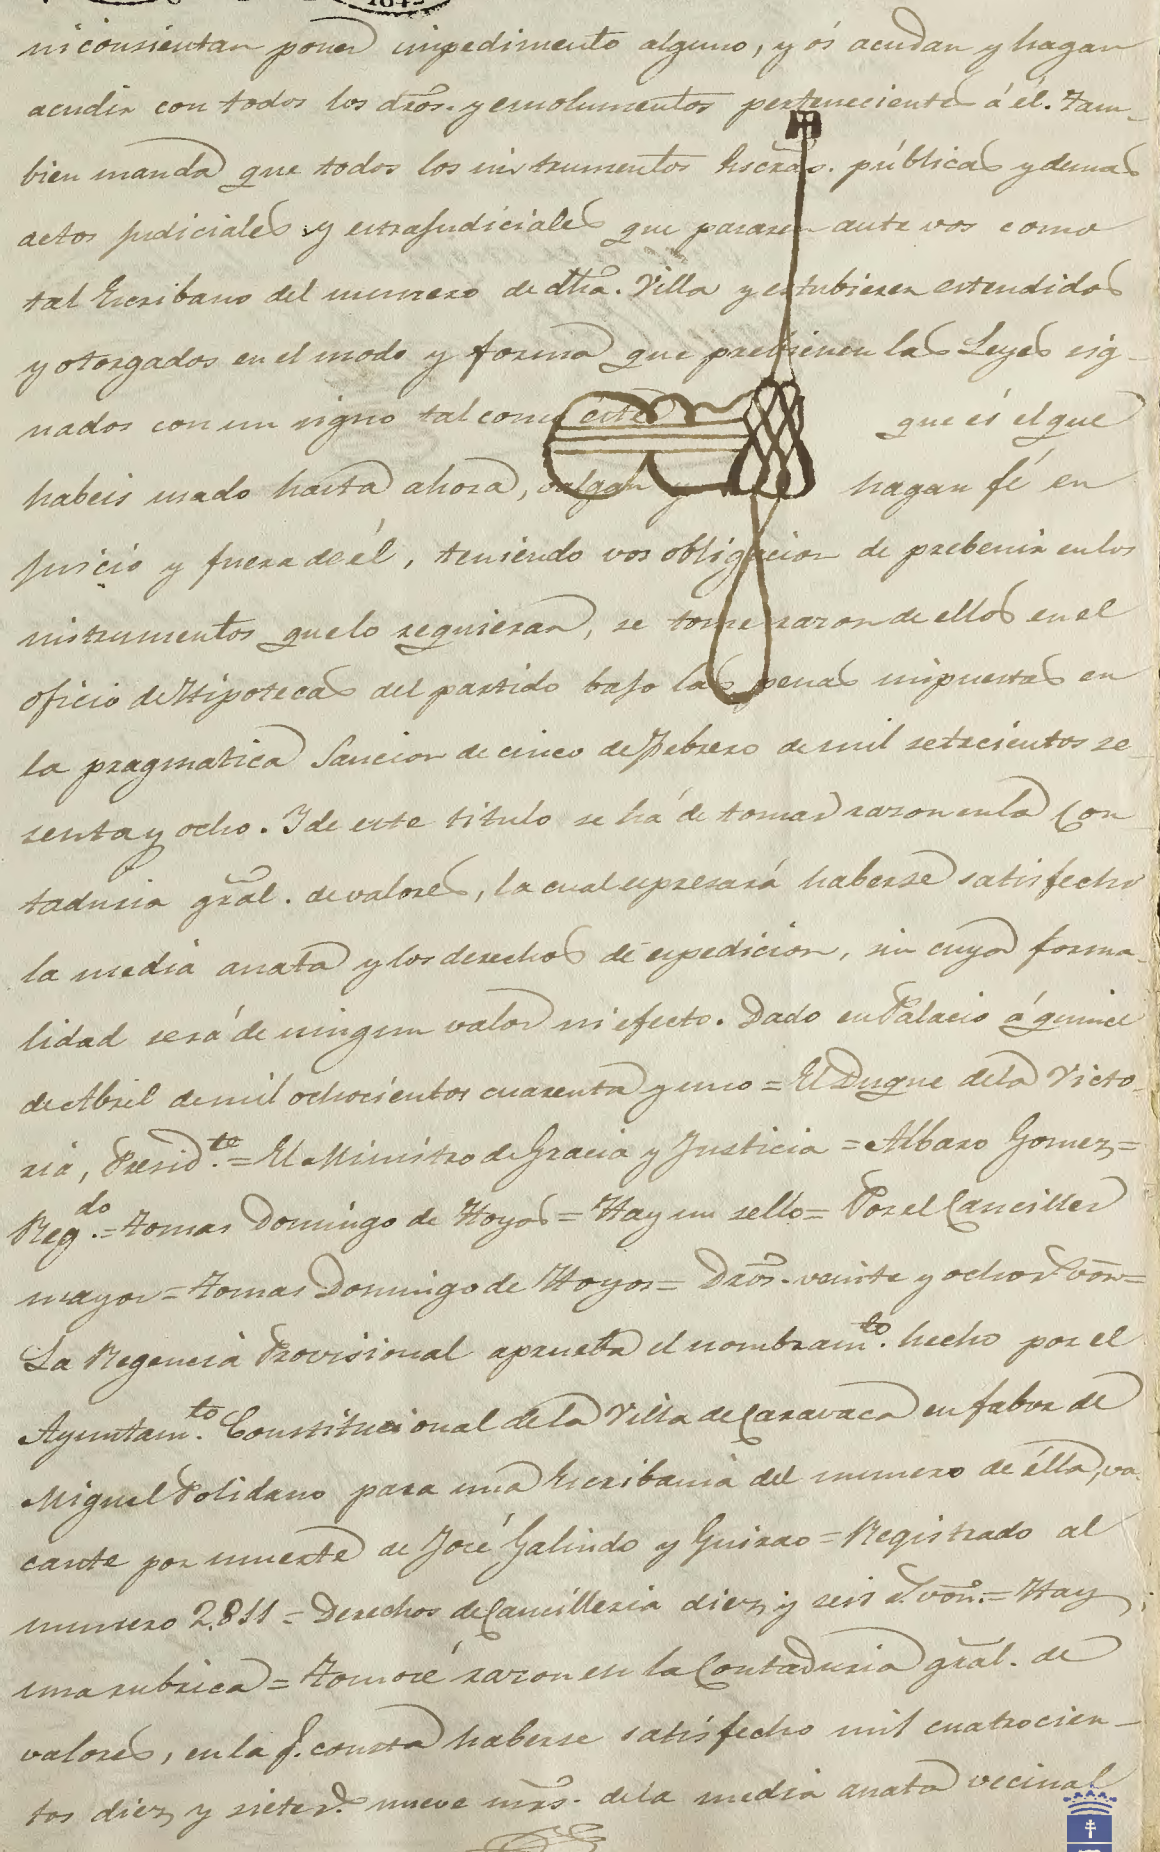 1845
ni consientan poner impedimento alguno, y ós acudan y hagan
acudir con todos los dros. y emolumentos pertenecientes á él. Tam-
bien manda que todos los instrumentos Escras. públicas y demas
actos judiciales y estrajudiciales que pasaren ante vos como
tal Escribano del numero de dha. Villa y estubieren estendidos
y otorgados en el modo y forma que prebienen las Leyes sig-
nados con un signo tal como éste que és el que
habeis usado hasta ahora, valgan y hagan fé en
juicio y fuera de él, teniendo vos obligacion de prebenir en los
instrumentos que lo requieran, se tome razon de ellos en el
oficio de Hipotecas del partido bajo las penas impuestas en
la pragmatica Sancion de cinco de Febrero de mil setecientos se-
senta y ocho. Y de este titulo se há de tomar razon en la Con
taduria gral. de valores, la cual espresará haberse satisfecho
la media anata y los derechos de espedicion, sin cuya forma-
lidad será de ningun valor ni efecto. Dado en Palacio á quince
de Abril de mil ochocientos cuarenta y uno = El Duque de la Victo-
ria, Presidte. = El Ministro de Gracia y Justicia = Albaro Gomez =
Regdo. = Tomas Domingo de Hoyos = Hay un sello = Por el Canciller
mayor = Tomas Domingo de Hoyos = Dros. veinte y ocho r. von =
La Regencia Provisional aprueba el nombramto. hecho por el
Ayuntamto. Constitucional de la Villa de Caravaca en fabor de
Miguel Polidano para una Escribania del numero de élla, va-
cante por muerte de José Galindo y Guirao = Registrado al
numero 2811 = Derechos de Cancilleria diez y seis r. von. = Hay
una rubrica = Tomose razon en la Contaduria gral. de
valores, en la q. consta haberse satisfecho mil cuatrocien-
tos diez y siete r. nueve mrs. de la media anata vecinal